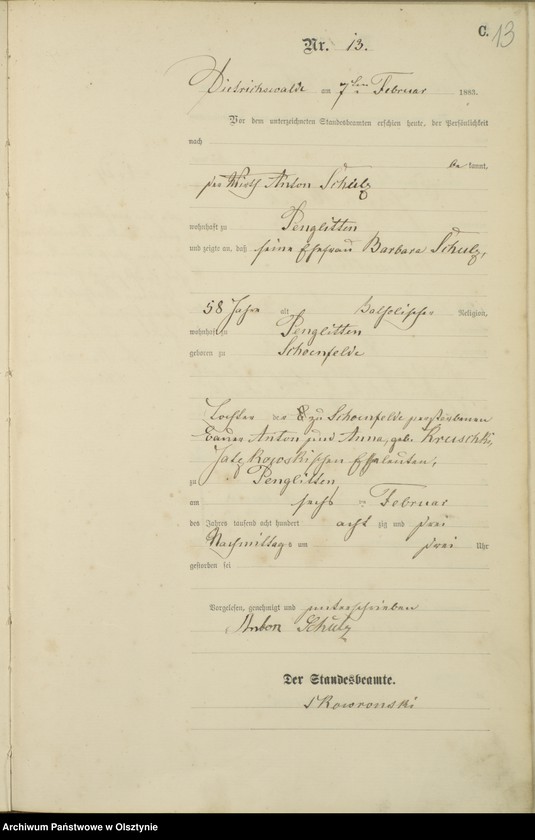 C. 13
Nr. 13.
Dietrichswalde am 7ten Februar 1883.
Vor dem unterzeichneten Standesbeamten erschien heute, der Persönlichkeit
nach
be kannt,
der Wirth Anton Schulz
wohnhaft zu Penglitten
und zeigte an, daß seine Ehefrau Barbara Schulz,
58 Jahre alt Katholischer Religion,
wohnhaft zu Penglitten
geboren zu Schoenfelde
Tochter der zu Schoenfelde verstorbenen
Bauer Anton und Anna, geb. Kruschki,
Eheleuten,
zu Penglitten
am sechs ten Februar
des Jahres tausend acht hundert acht zig und drei
Nachmittags um drei Uhr
gestorben sei
Vorgelesen, genehmigt und unterschrieben
Anton Schulz
Der Standesbeamte.
Skowronski
Archiwum Państwowe w Olsztynie